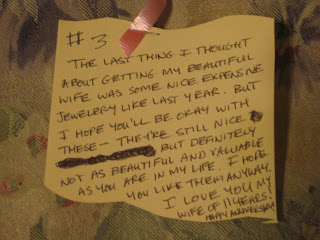 #3
THE LAST THING I THOUGHT
ABOUT GETTING MY BEAUTIFUL
WIFE WAS SOME NICE EXPENSIVE
JEWELERY LIKE LAST YEAR. BUT
I HOPE YOU'LL BE OKAY WITH
THESE— THEY'RE STILL NICE
BUT DEFINITELY
NOT AS BEAUTIFUL AND VALUABLE
AS YOU ARE IN MY LIFE. I HOPE
YOU LIKE THEM ANYWAY.
I LOVE YOU MY
WIFE OF 11 YEARS!
HAPPY ANNIVERSARY